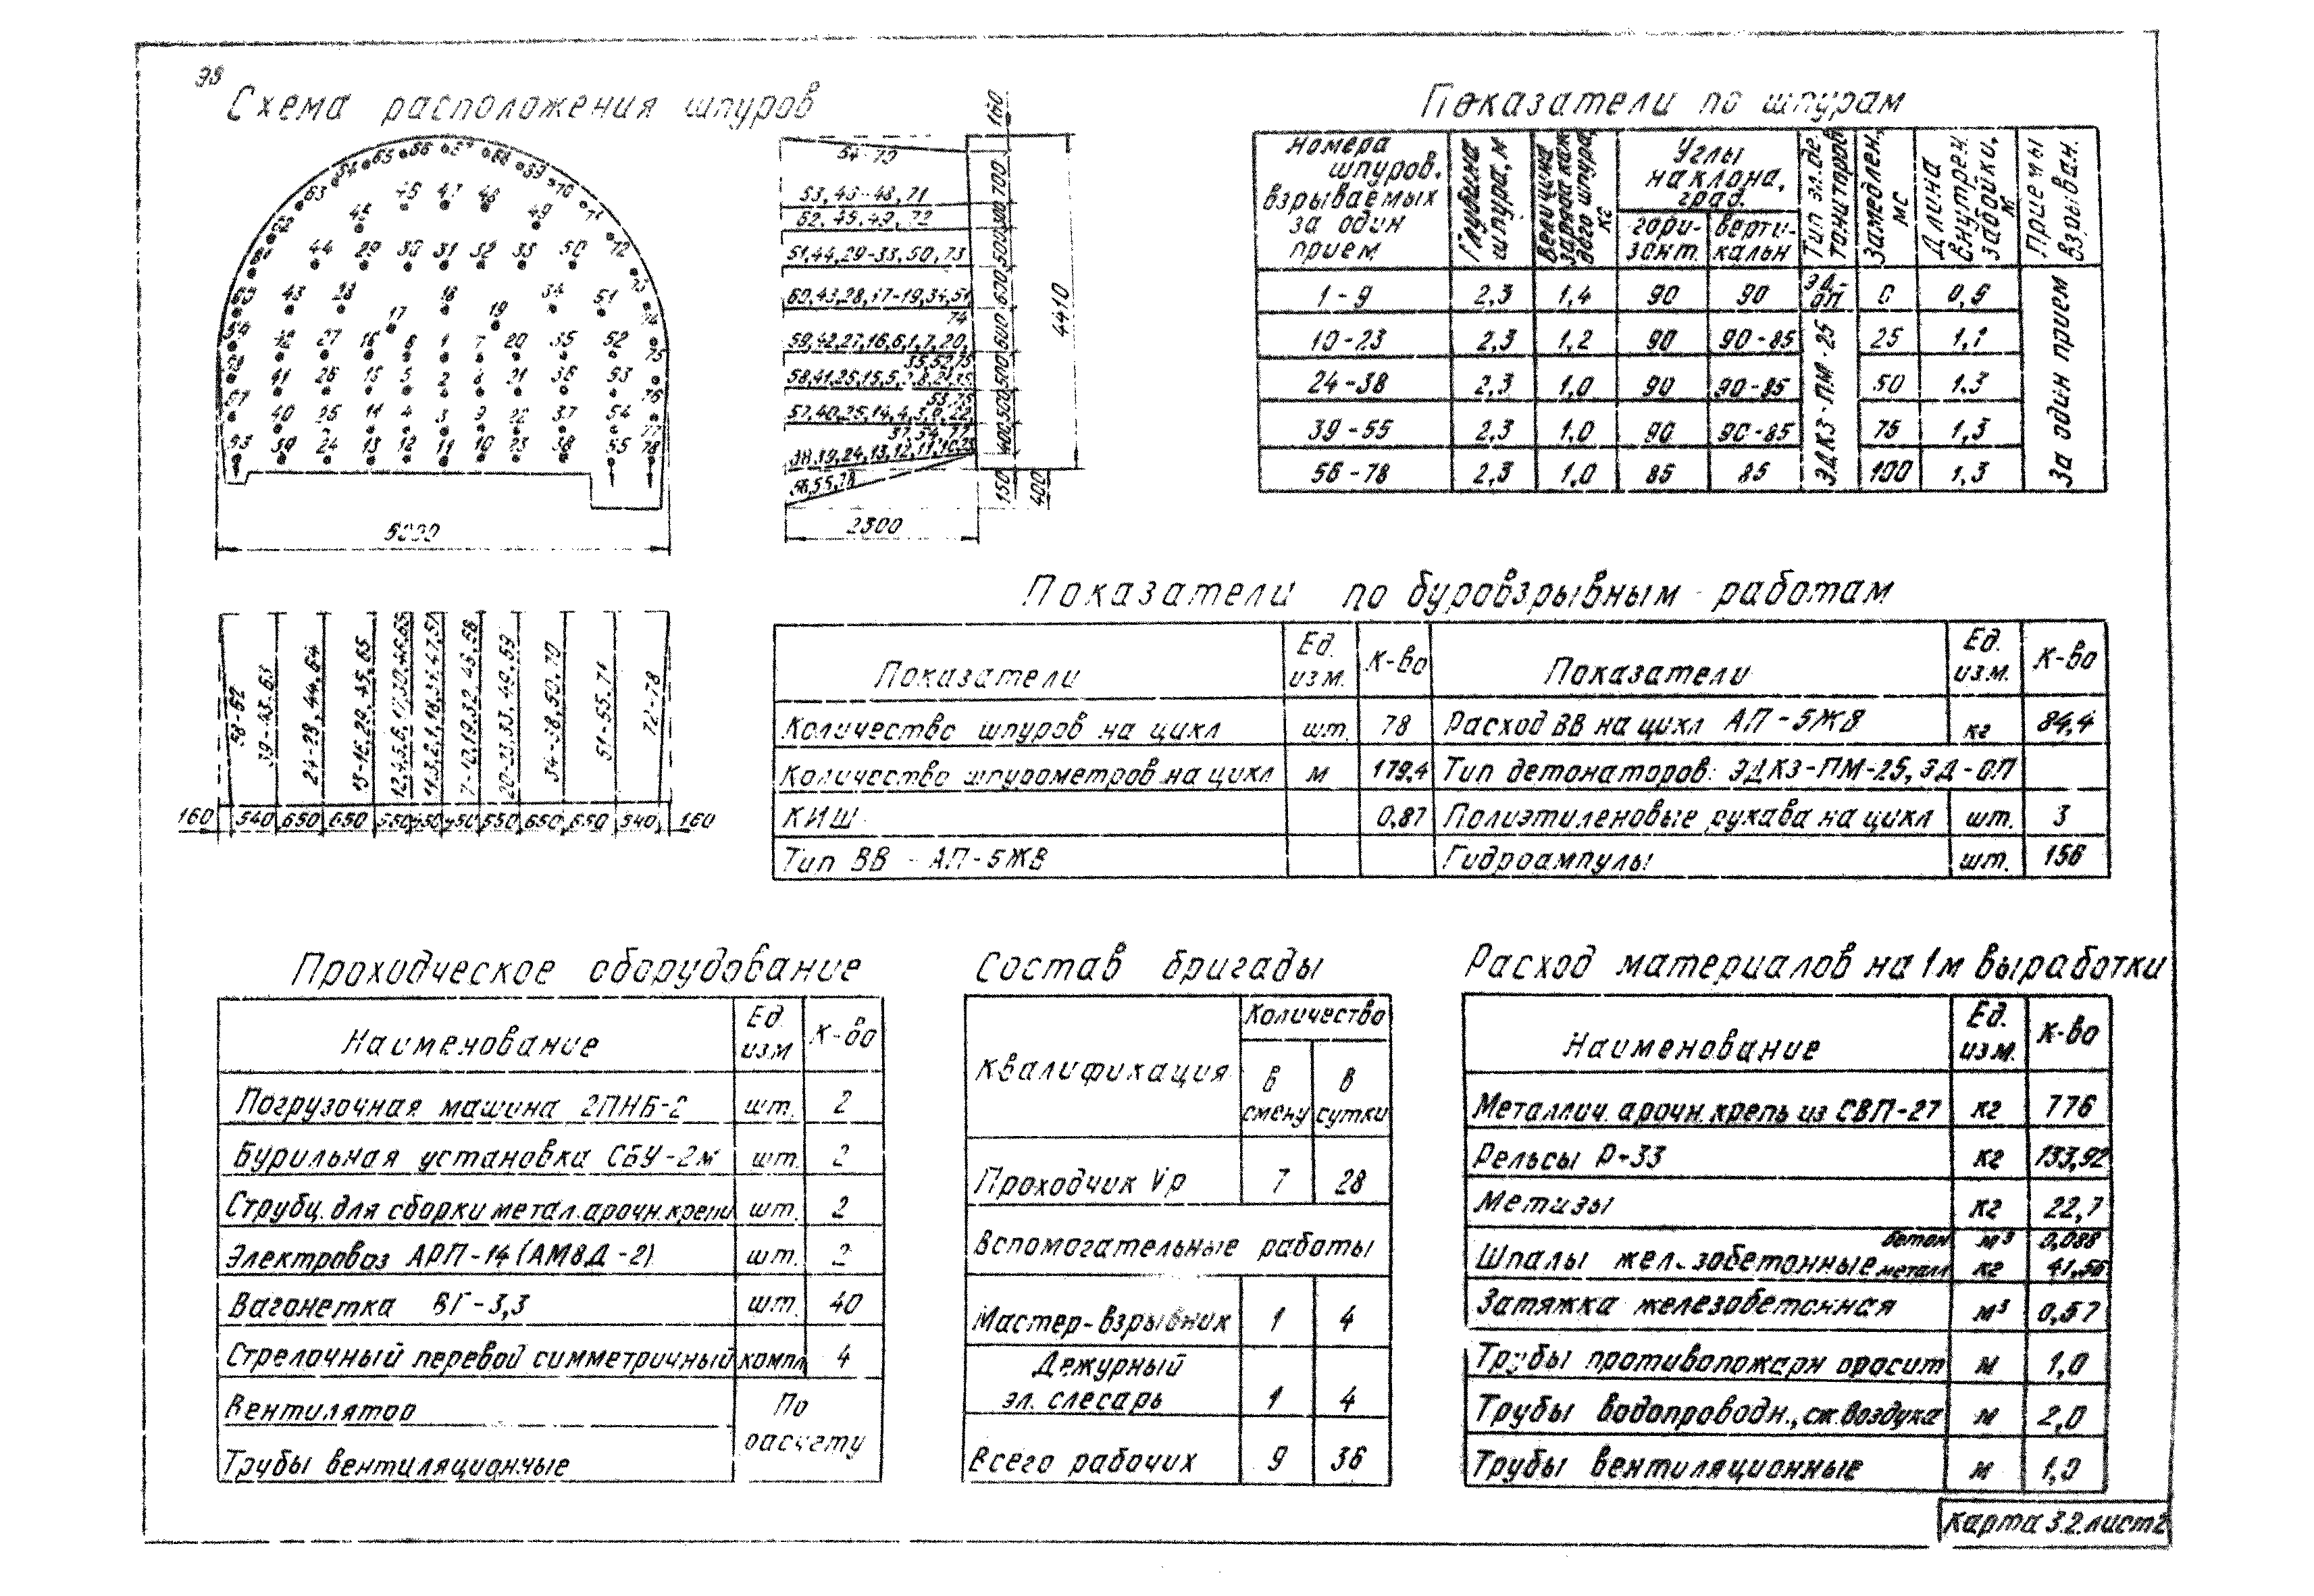 98
Схема расположения шпуров
160
54-70
53,46-48,71
52,45,49,72
51,44,29-33,50,73
60,43,28,17-19,34,51
74
59,42,27,16,6,1,7,20,
35,52,75
53,75
37,54,77
56,55,78
700
500
600
600
500
500
400
4410
150
400
2300
6000
63
65
66
67
68
69
70
71
46
47
48
45
49
44
29
30
31
32
33
50
72
43
28
17
18
19
34
51
73
42
27
16
6
1
7
20
35
52
75
41
26
15
5
2
8
21
36
53
76
40
25
14
4
3
9
22
37
54
77
39
24
13
12
11
10
23
38
55
78
Показатели по шпурам
Номера шпуров, взрываемых за один прием
Глубина шпура, м
Величина заряда каждого шпура, кг
Углы наклона, град.
гори-зонт.
верти-кальн
Тип эл.де-тонаторов
Замедлен., мс
Длина внутрен. забойки, м
Приемы взрыван.
1-9 2,3 1,4 90 90 ЭД-ОП 0 0,9
10-23 2,3 1,2 90 90-85 25 1,1
24-38 2,3 1,0 90 90-85 50 1,3
39-55 2,3 1,0 90 90-85 75 1,3
56-78 2,3 1,0 85 85 100 1,3
ЭДКЗ-ПМ-25
За один прием
58-62
39-43,63
24-28,44,64
13-16,29,45,65
20-23,33,49,69
34-38,50,70
51-55,71
72-78
160 540 650 650 550 450 450 550 650 650 540 160
Показатели по буровзрывным работам
Показатели Ед. изм. К-во Показатели Ед. изм. К-во
Количество шпуров на цикл шт. 78 Расход ВВ на цикл АП-5ЖВ кг 84,4
Количество шпурометров на цикл м 179,4 Тип детонаторов: ЭДКЗ-ПМ-25, ЭД-ОП
КИШ 0,87 Полиэтиленовые рукава на цикл шт. 3
Тип ВВ - АП-5ЖВ Гидроампулы шт. 156
Проходческое оборудование
Наименование Ед. изм К-во
Погрузочная машина 2ПНБ-2 шт. 2
Бурильная установка СБУ-2м шт. 2
Струбц. для сборки метал. арочн. крепи шт. 2
Электровоз АРП-14 (АМ8Д-2) шт. 2
Вагонетка ВГ-3,3 шт. 40
Стрелочный перевод симметричный компл 4
Вентилятор
Трубы вентиляционные
По расчету
Состав бригады
Квалификация
Количество
в смену
в сутки
Проходчик Vр 7 28
Вспомогательные работы
Мастер-взрывник 1 4
Дежурный
эл. слесарь 1 4
Всего рабочих 9 36
Расход материалов на 1м выработки
Наименование Ед. изм. К-во
Металлич. арочн. крепь из СВП-27 кг 776
Рельсы Р-33 кг 133,92
Метизы кг 22,7
Шпалы жел.-зобетонные бетон м³ 0,088
металл кг 41,56
Затяжка железобетонная м³ 0,57
Трубы противопожарн оросит м 1,0
Трубы водопроводн., сж.воздуха м 2,0
Трубы вентиляционные м 1,0
Карта 3.2 лист 2